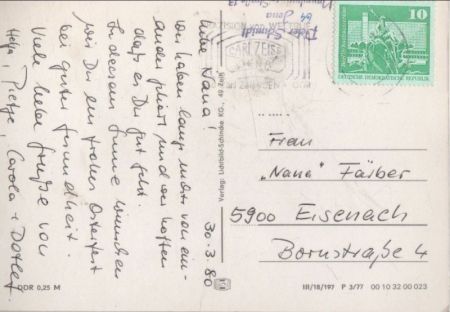 30.3.80
Liebe Nana!
Wir haben lange nichts von ein-
ander gehört und wir hoffen
daß es Dir gut geht.
In diesem Sinne wünschen
wir Dir ein frohes Osterfest
bei guter Gesundheit.
Viele liebe Grüße von
Helga, Carola + Detlef.
DDR 0,25 M
Verlag: Lichtbild-Schincke KG., 49 Zeitz
Peter Schmidt
64 Jena
CARL ZEISS
JENA
10
DEUTSCHE DEMOKRATISCHE REPUBLIK
Frau
„Nana" Färber
5900 Eisenach
Bornstraße 4
III/18/197 P 3/77 00 10 32 00 023